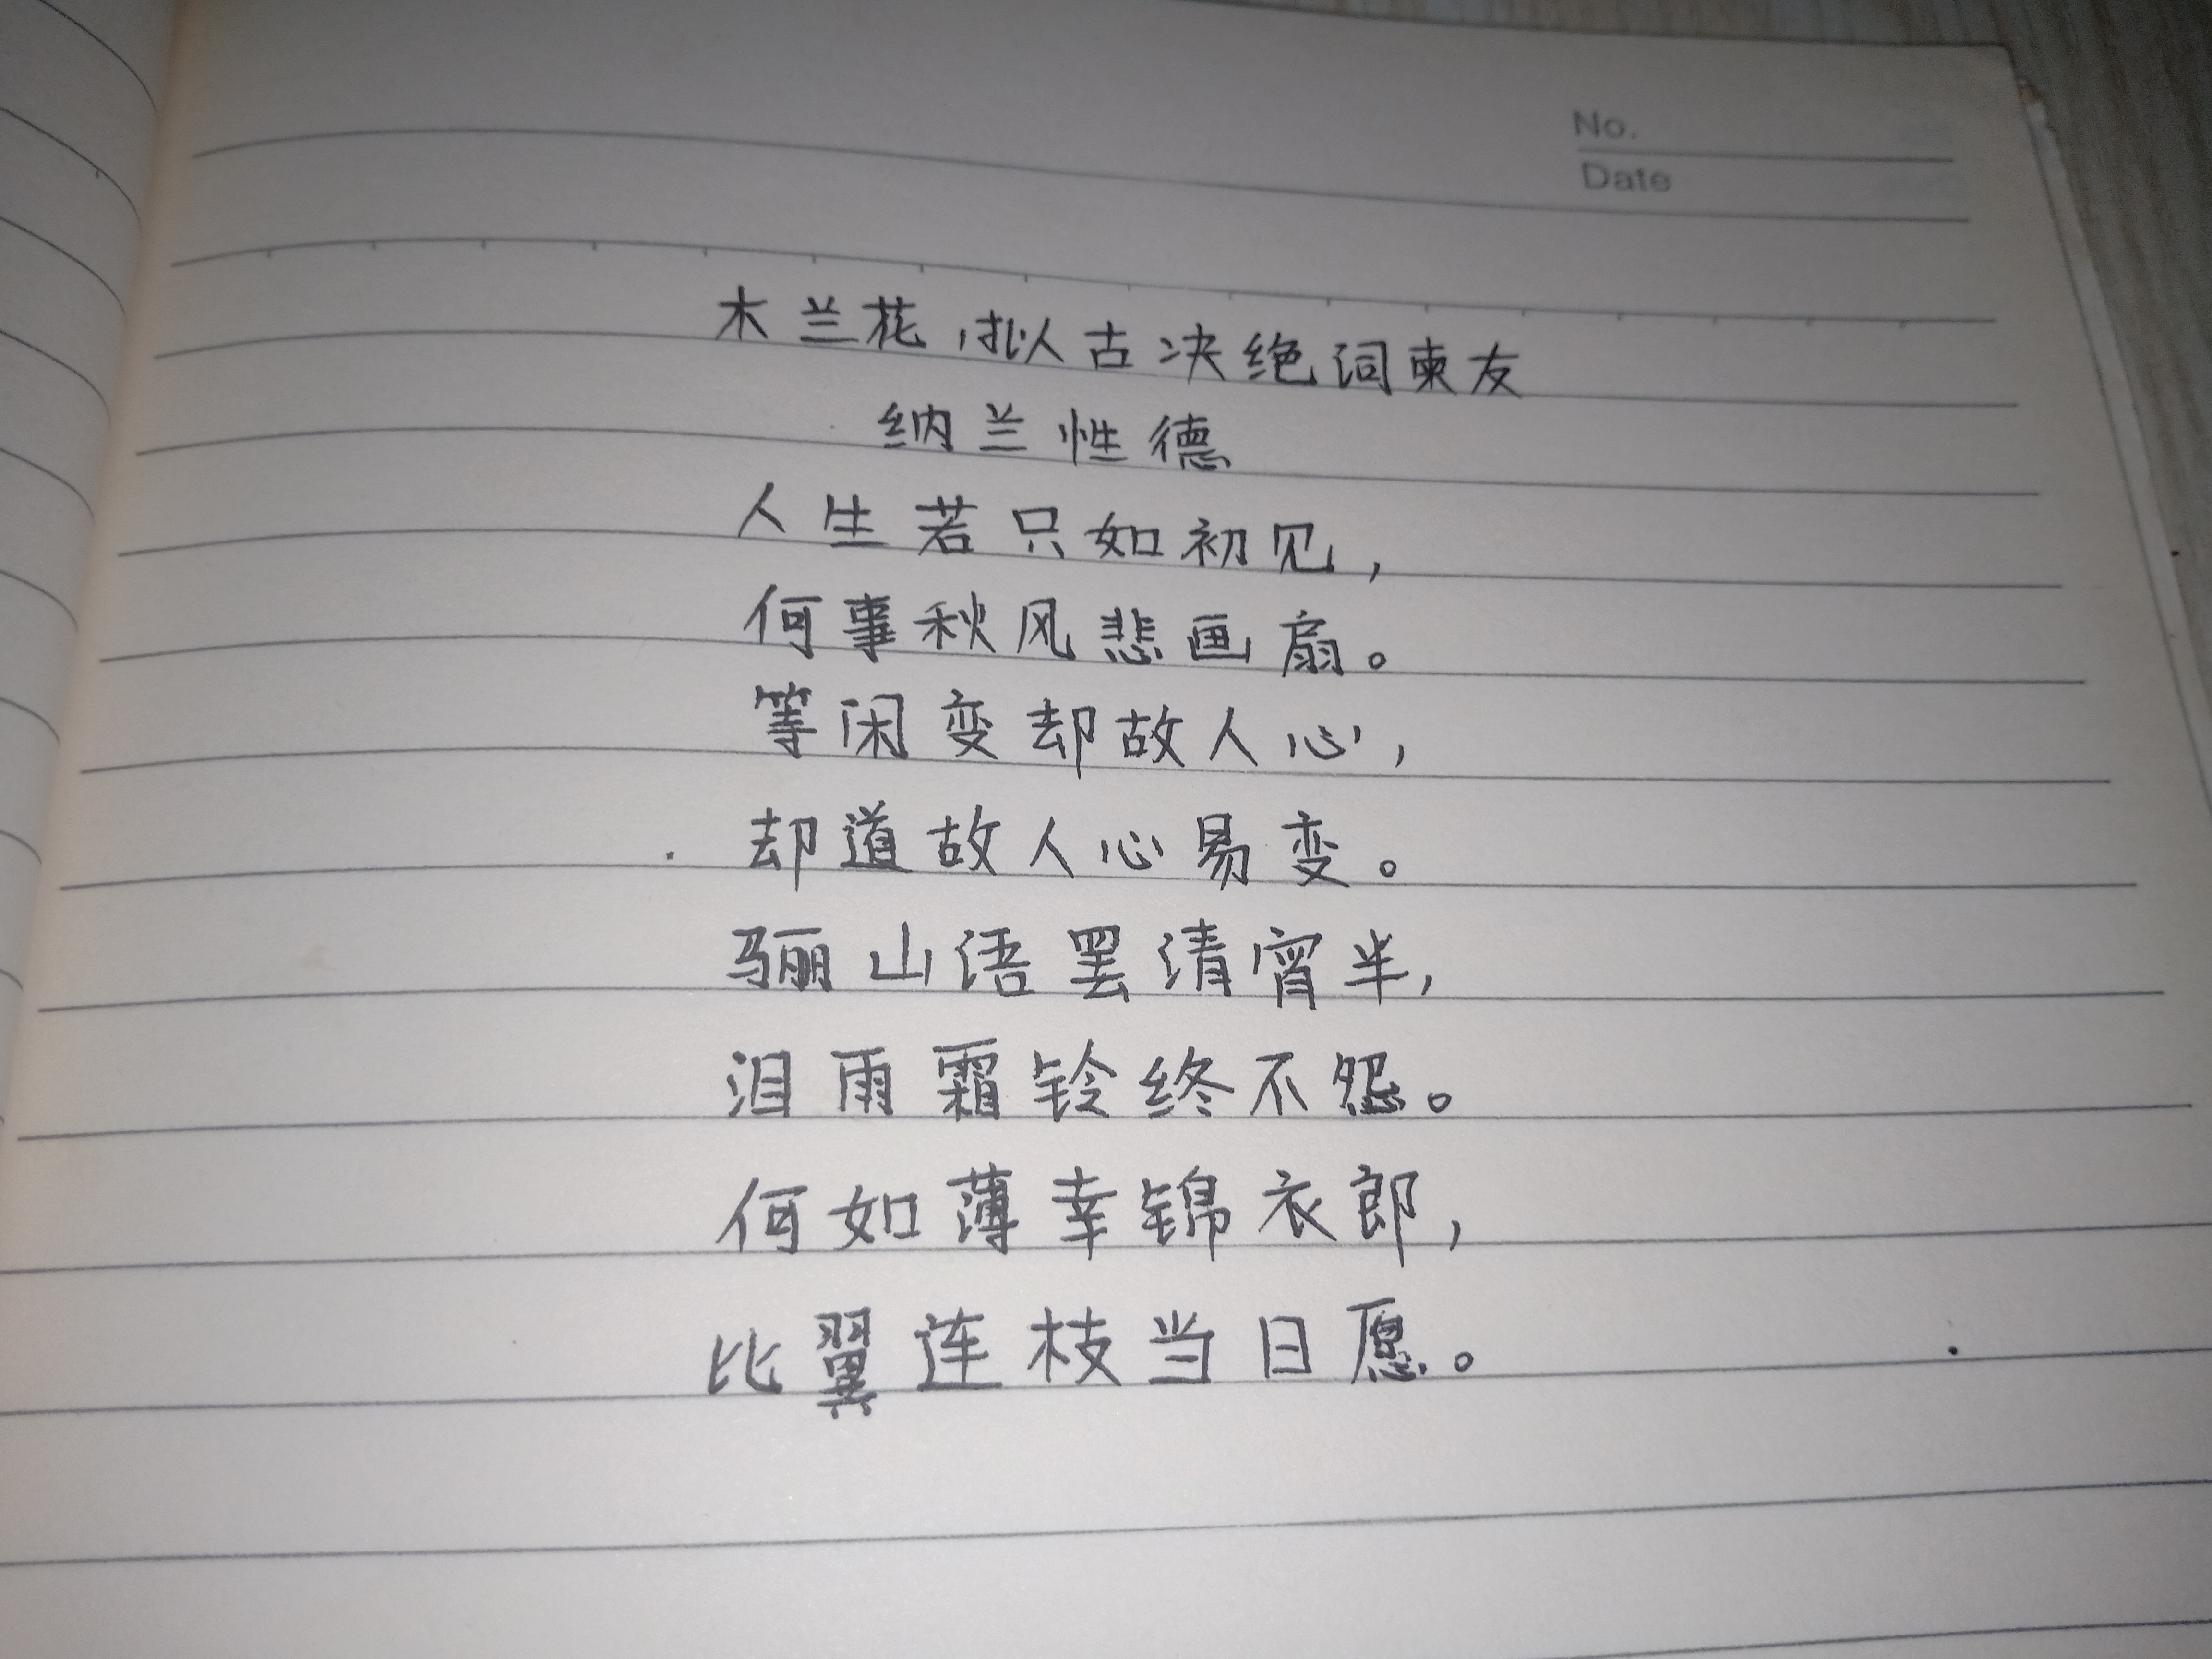 No.
Date
木兰花,拟古决绝词柬友
纳兰性德
人生若只如初见,
何事秋风悲画扇。
等闲变却故人心,
却道故人心易变。
骊山语罢清宵半,
泪雨霜铃终不怨。
何如薄幸锦衣郎,
比翼连枝当日愿。